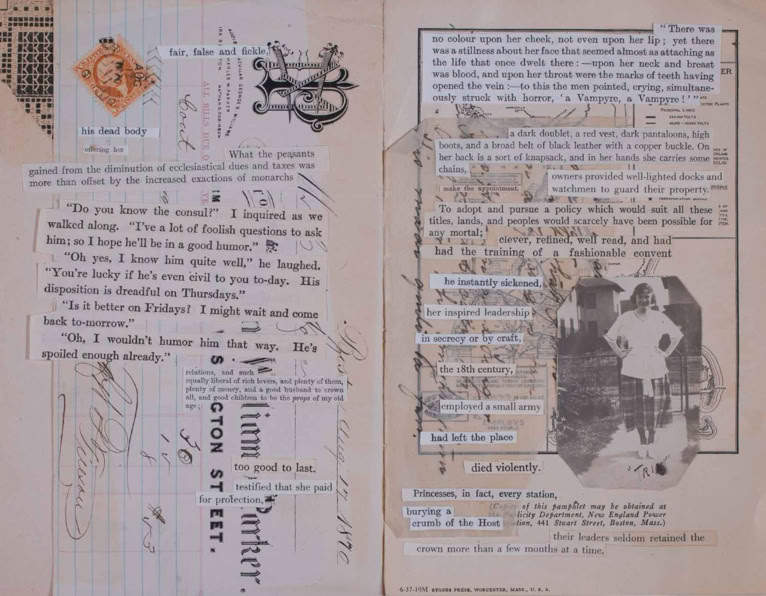 fair, false and fickle,
his dead body
offering her
What the peasants
gained from the diminution of ecclesiastical dues and taxes was
more than offset by the increased exactions of monarchs
"Do you know the consul?" I inquired as we
walked along. "I've a lot of foolish questions to ask
him; so I hope he'll be in good humor."
"Oh yes, I know him quite well," he laughed.
"You're lucky if he's even civil to you to-day. His
disposition is dreadful on Thursdays."
"Is it better on Fridays? I might wait and come
back to-morrow."
"Oh, I wouldn't humor him that way. He's
spoiled enough already."
relations, and such
equally liberal of rich lovers, and plenty of them,
plenty of money, and a good husband to crown
all, and good children to be the props of my old
age;
too good to last.
testified that she paid
for protection,
GTON STREET.
Parker.
Aug 17, 1870
ALL BILLS DUE
"There was
no colour upon her cheek, not even upon her lip; yet there
was a stillness about her face that seemed almost as attaching as
the life that once dwelt there:—upon her neck and breast
was blood, and upon her throat were the marks of teeth having
opened the vein:—to this the men pointed, crying, simultane-
ously struck with horror, 'a Vampyre, a Vampyre!'"
a dark doublet, a red vest, dark pantaloons, high
boots, and a broad belt of black leather with a copper buckle. On
her back is a sort of knapsack, and in her hands she carries some
chains,
owners provided well-lighted docks and
watchmen to guard their property.
make the appointment,
To adopt and pursue a policy which would suit all these
titles, lands, and peoples would scarcely have been possible for
any mortal;
clever, refined, well read, and had
had the training of a fashionable convent
he instantly sickened,
her inspired leadership
in secrecy or by craft,
the 18th century,
employed a small army
had left the place
died violently.
"TRIX"
Princesses, in fact, every station,
(Copies of this pamphlet may be obtained at
the Publicity Department, New England Power
burying a
crumb of the Host
441 Stuart Street, Boston, Mass.)
their leaders seldom retained the
crown more than a few months at a time,
6-37-10M STOBBS PRESS, WORCESTER, MASS., U. S. A.